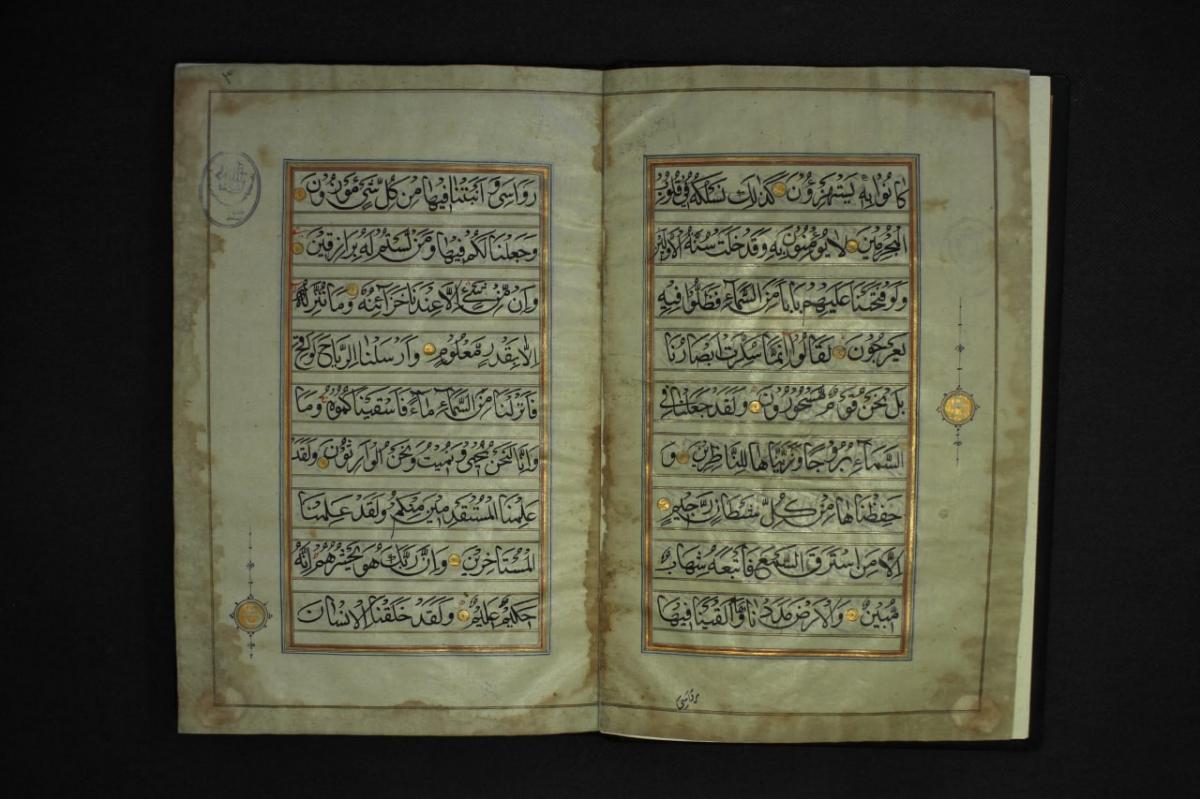 كَانُوا بِهٖ يَسْتَهْزِؤُنَ كَذٰلِكَ نَسْلُكُهُ فِي قُلُوبِ
الْمُجْرِمِينَ لَا يُؤْمِنُونَ بِهِ وَقَدْ خَلَتْ سُنَّةُ الْاَوَّلِينَ
وَلَوْ فَتَحْنَا عَلَيْهِمْ بَابًا مِنَ السَّمَاءِ فَظَلُّوا فِيهِ
يَعْرُجُونَ لَقَالُوا اِنَّمَا سُكِّرَتْ اَبْصَارُنَا
بَلْ نَحْنُ قَوْمٌ مَسْحُورُونَ وَلَقَدْ جَعَلْنَا فِي
السَّمَاءِ بُرُوجًا وَزَيَّنَّاهَا لِلنَّاظِرِينَ وَ
حَفِظْنَاهَا مِنْ كُلِّ شَيْطَانٍ رَجِيمٍ
اِلَّا مَنِ اسْتَرَقَ السَّمْعَ فَاَتْبَعَهُ شِهَابٌ
مُبِينٌ وَالْاَرْضَ مَدَدْنَاهَا وَاَلْقَيْنَا فِيهَا
رَوَاسِيَ وَاَنْبَتْنَا فِيهَا مِنْ كُلِّ شَيْءٍ مَوْزُونٍ
وَجَعَلْنَا لَكُمْ فِيهَا وَمَنْ لَسْتُمْ لَهُ بِرَازِقِينَ
وَاِنْ مِنْ شَيْءٍ اِلَّا عِنْدَنَا خَزَائِنُهُ وَمَا نُنَزِّلُهُ
اِلَّا بِقَدَرٍ مَعْلُومٍ وَاَرْسَلْنَا الرِّيَاحَ لَوَاقِحَ
فَاَنْزَلْنَا مِنَ السَّمَاءِ مَاءً فَاَسْقَيْنَاكُمُوهُ وَمَا
وَاِنَّا لَنَحْنُ نُحْيِي وَنُمِيتُ وَنَحْنُ الْوَارِثُونَ وَلَقَدْ
عَلِمْنَا الْمُسْتَقْدِمِينَ مِنْكُمْ وَلَقَدْ عَلِمْنَا
الْمُسْتَاْخِرِينَ وَاِنَّ رَبَّكَ هُوَ يَحْشُرُهُمْ اِنَّهُ
حَكِيمٌ عَلِيمٌ وَلَقَدْ خَلَقْنَا الْاِنْسَانَ